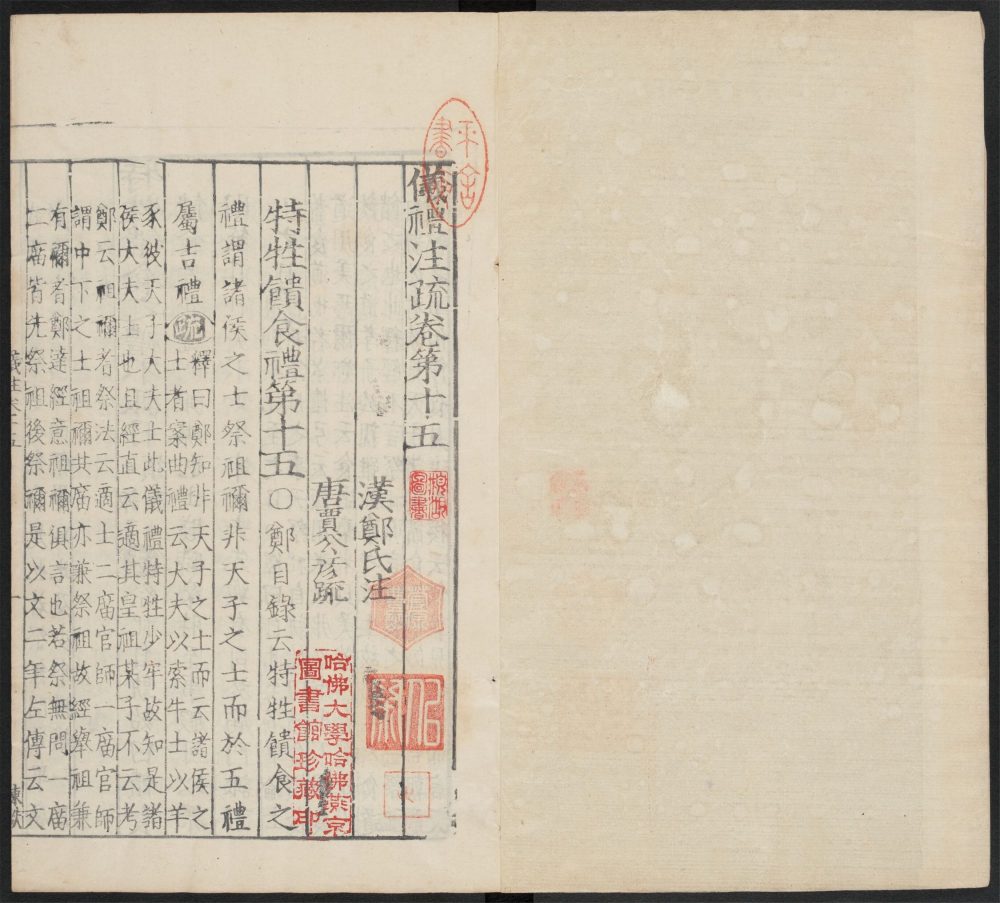 儀禮注疏卷第十五
漢鄭氏注
唐賈公彥疏
特牲饋食禮第十五○鄭目錄云特牲饋食之
禮謂諸侯之士祭祖禰非天子之士而於五禮
屬吉禮疏釋曰鄭知非天子之士而云諸侯之
士者案曲禮云大夫以索牛士以羊
豕彼天子大夫士此儀禮特牲少牢故知是諸
侯大夫士也且經直云適其皇祖某子不云考
鄭云祖禰者祭法云適士二庿官師一庿官師
謂中下之士祖禰共庿亦兼祭祖故經舉祖兼
有禰者鄭達經意祖禰俱言也若祭無問一庿
二庿皆先祭祖後祭禰是以文二年左傳云文
哈佛大學哈佛燕京
圖書館珍藏印